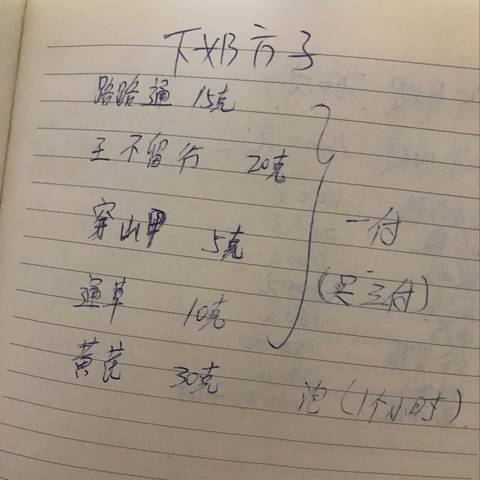 下奶方子
路路通 15克
王不留行 20克
穿山甲 5克
一付
(买三付)
通草 10克
黄芪 30克
泡(1个小时)